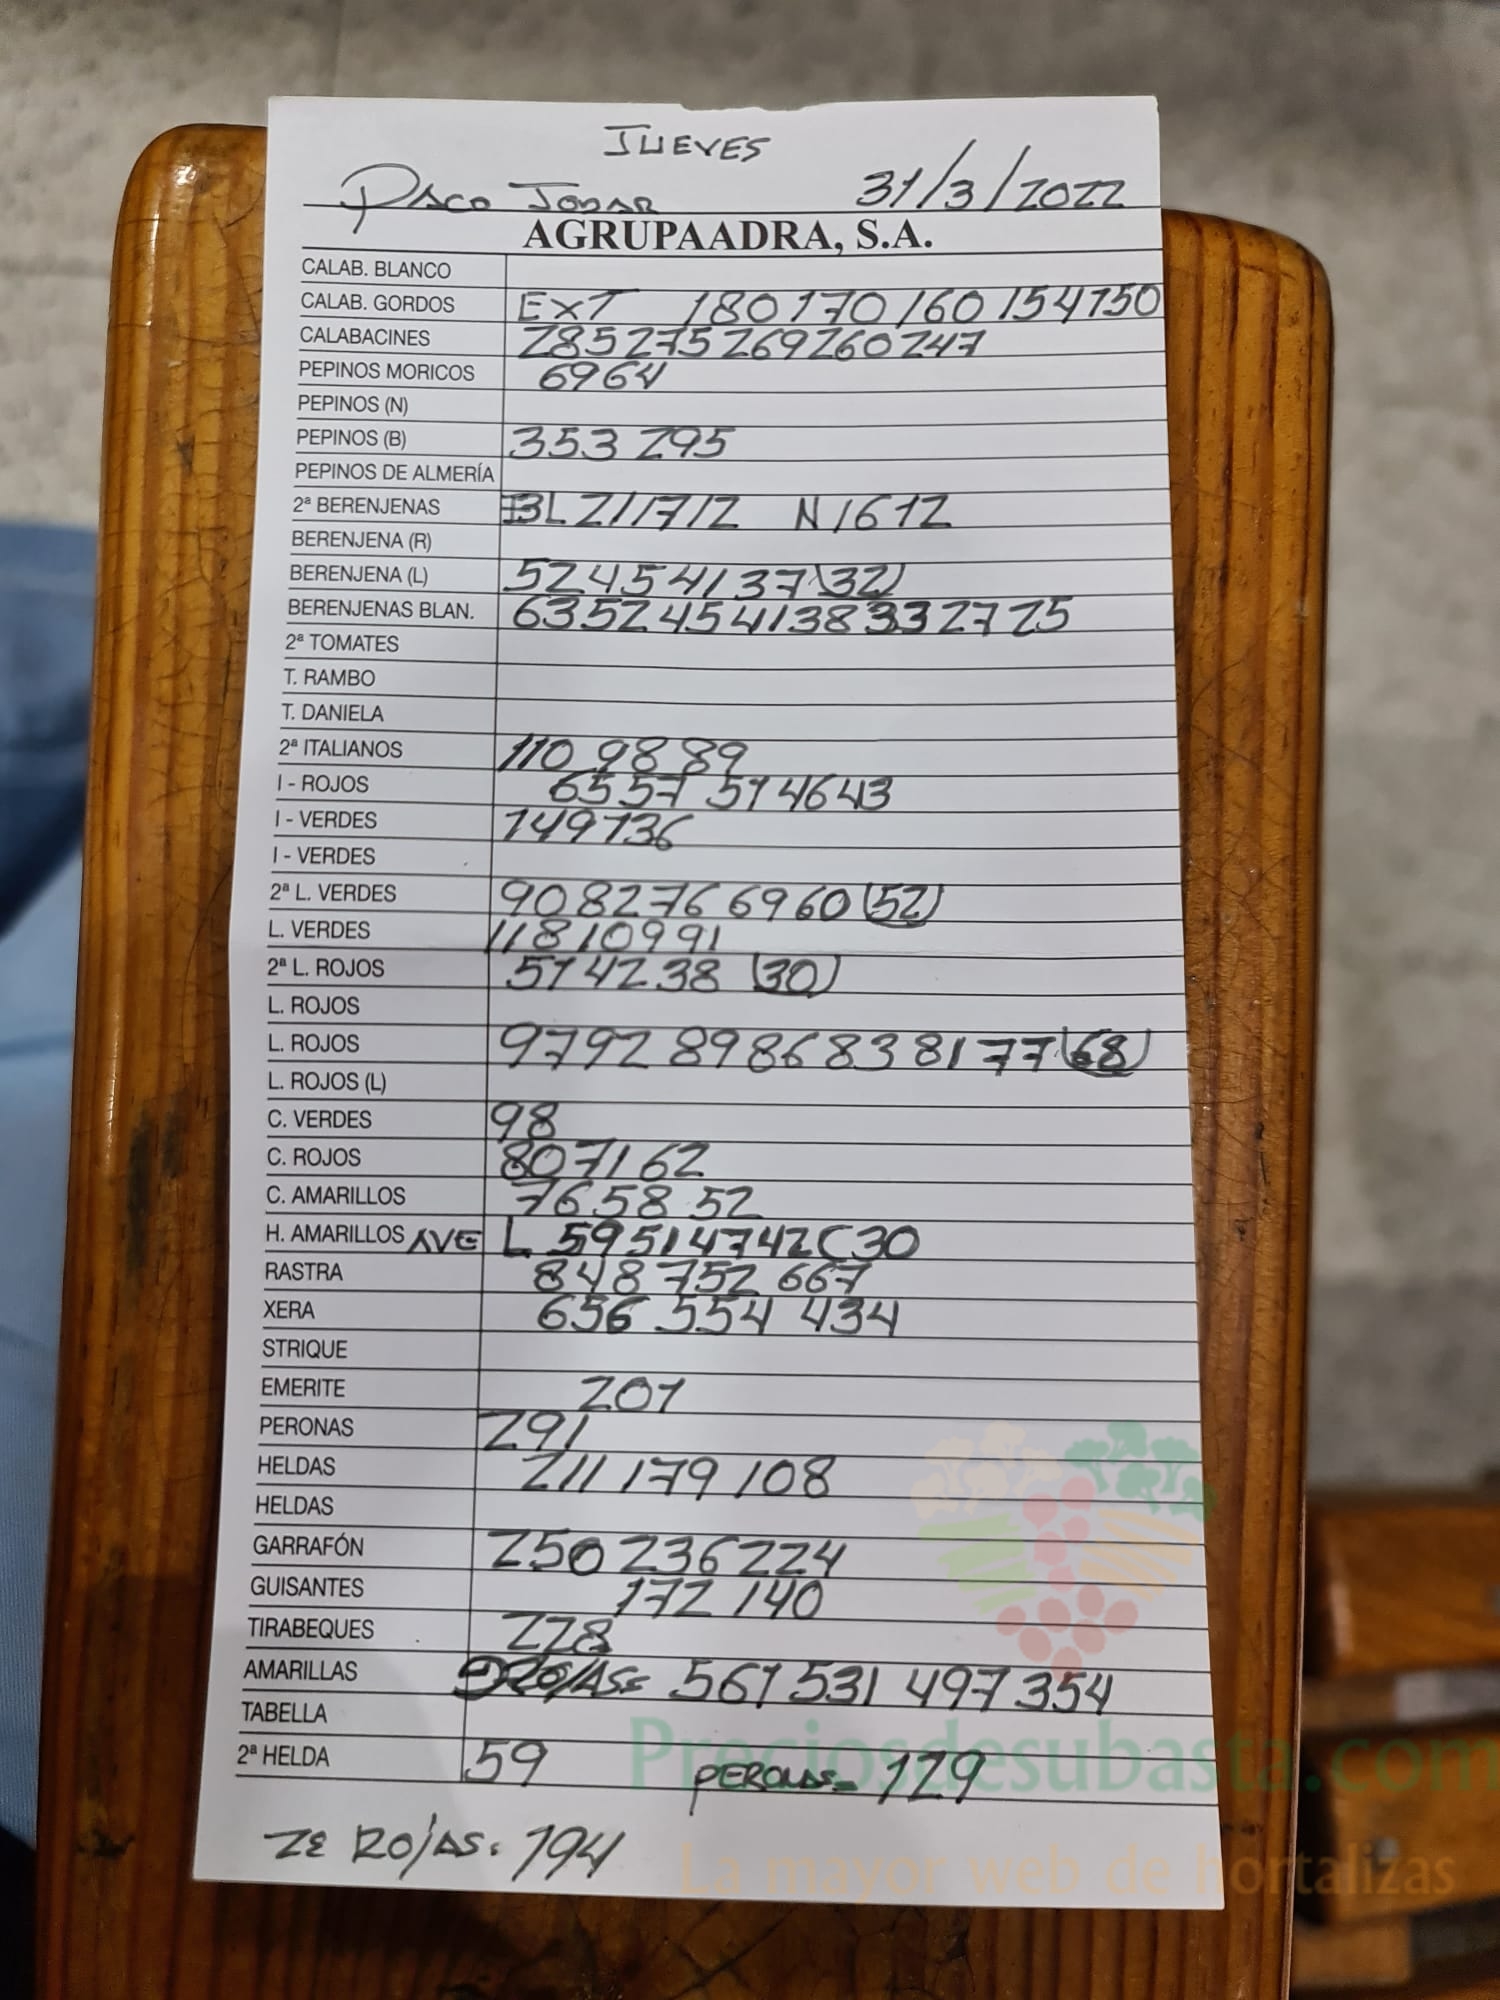 JUEVES
PACO JODAR 31/3/2022
AGRUPAADRA, S.A.
CALAB. BLANCO
CALAB. GORDOS EXT 180 170 160 154 150
CALABACINES 285 275 269 260 247
PEPINOS MORICOS 69 64
PEPINOS (N)
PEPINOS (B) 353 295
PEPINOS DE ALMERÍA
2ª BERENJENAS BL 21 17 12 N 16 12
BERENJENA (R)
BERENJENA (L) 52 45 41 37 (32)
BERENJENAS BLAN. 63 52 45 41 38 33 27 25
2ª TOMATES
T. RAMBO
T. DANIELA
2ª ITALIANOS 110 98 89
I - ROJOS 65 57 51 46 43
I - VERDES 149 136
I - VERDES
2ª L. VERDES 90 82 76 69 60 (52)
L. VERDES 118 109 91
2ª L. ROJOS 51 42 38 (30)
L. ROJOS
L. ROJOS 97 92 89 86 83 81 77 (68)
L. ROJOS (L)
C. VERDES 98
C. ROJOS 80 71 62
C. AMARILLOS 76 58 52
H. AMARILLOS AVE L 59 51 47 42 C 30
RASTRA 848 752 667
XERA 656 554 434
STRIQUE
EMERITE 201
PERONAS 291
HELDAS 211 179 108
HELDAS
GARRAFÓN 250 236 224
GUISANTES 172 140
TIRABEQUES 228
AMARILLAS ROJAS= 561 531 497 354
TABELLA
2ª HELDA 59 PERONAS= 129
2ª ROJAS= 194
Preciosdesubasta.com
La mayor web de hortalizas